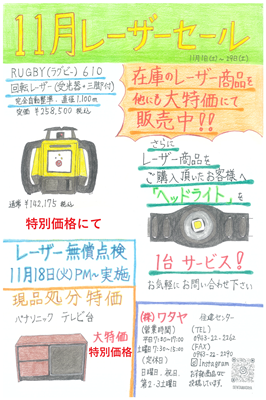 11月レーザーセール
11月1日(火)~19日(土)
RUGBY(ラグビー) 610
回転レーザー(受光器・三脚付)
完全自動整準・直径1,100m
定価 ¥258,500 税込
在庫のレーザー商品を
他にも大特価にて
販売中!!
通常 ¥142,175 税込
特別価格にて
さらに
レーザー商品を
ご購入頂いたお客様へ
「ヘッドライト」を
1台サービス!
お気軽にお問い合わせ下さい
レーザー無償点検
11月18日(火)PM~実施
現品処分特価
パナソニック テレビ台
大特価
特別価格
(株)ワタヤ
(営業時間)
平日 7:00~19:00
土曜 7:30~18:00
(定休日)
日曜日、祝日、
第2・3土曜日
(TEL)
0943-22-2262
(FAX)
0943-22-2290
Instagram
お得商品など
投稿しています。